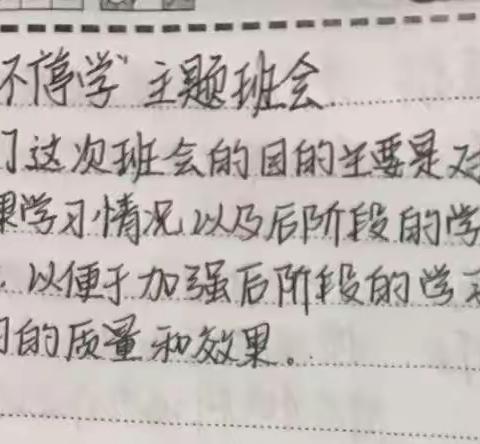 不停学”主题班会
门这次班会的目的主要是对
果学习情况以及后阶段的学
，以便于加强后阶段的学习
的质量和效果。